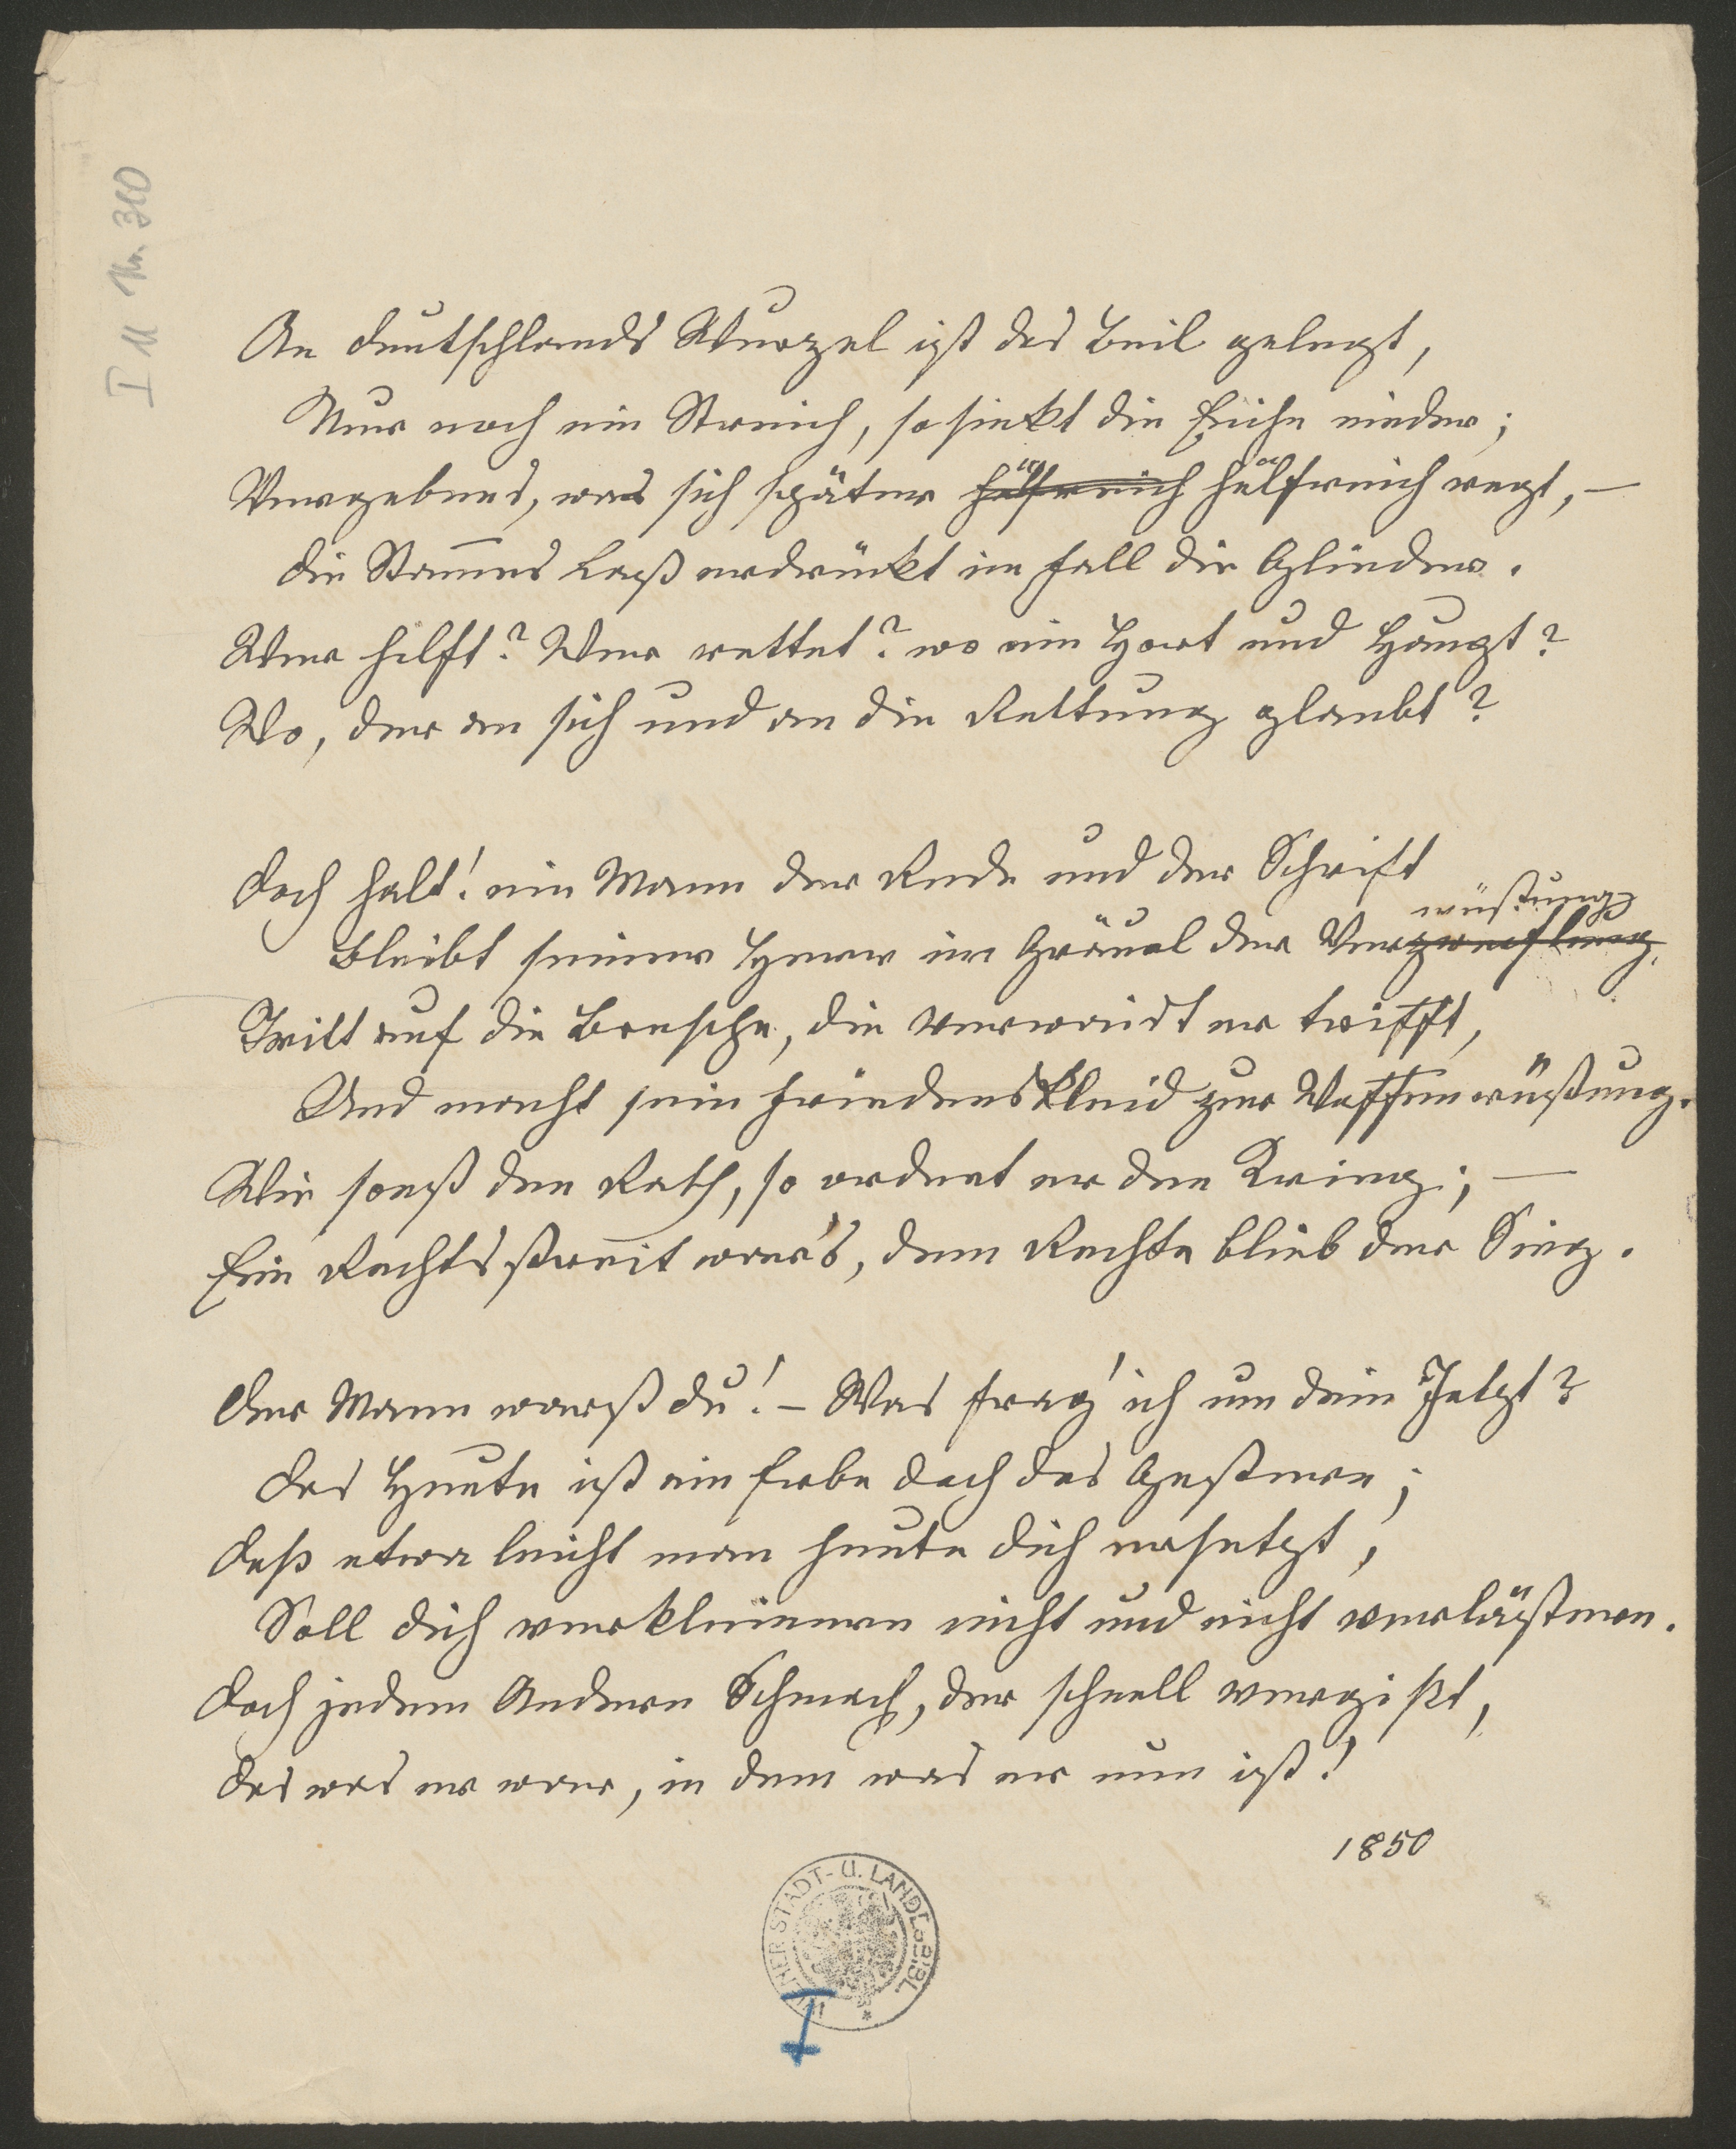 I N Nr. 300
An Deutschlands Wurzel ist das Beil gelegt,
Nur noch ein Streich, so sinkt die Eiche nieder;
Vergebens, was sich später hülfreich hülfreich regt, —
Die Stam̅es Last erdrückt im Fall die Glieder.
Wer hilft? Wer rettet? wo ein Hort und Haupt?
Wo, der an sich und an die Rettung glaubt?
Doch halt! ein Mann der Rede und der Schrift
wüstung
Bleibt seiner Herr im Gräuel der Verzweiflung.
Tritt auf die Bresche, die verwaist er trifft,
Und macht sein Friedenskleid zur Waffenrüstung.
Wie sonst den Rath, so ordnet er den Krieg; —
Ein Rechtsstreit war's, dem Rechte blieb der Sieg.
Der Mann warst du! – Was frag' ich um dein Jetzt?
Das Heute ist ein Erbe doch des Gestern;
Daß etwa leicht man heute dich ersetzt,
Soll dich verkleinern nicht und nicht verlästern.
Doch jedem Andern Schmach, der schnell vergißt,
Das was er war, in dem was er nun ist!
1850
WIENER STADT- U. LANDESBIBL.
I